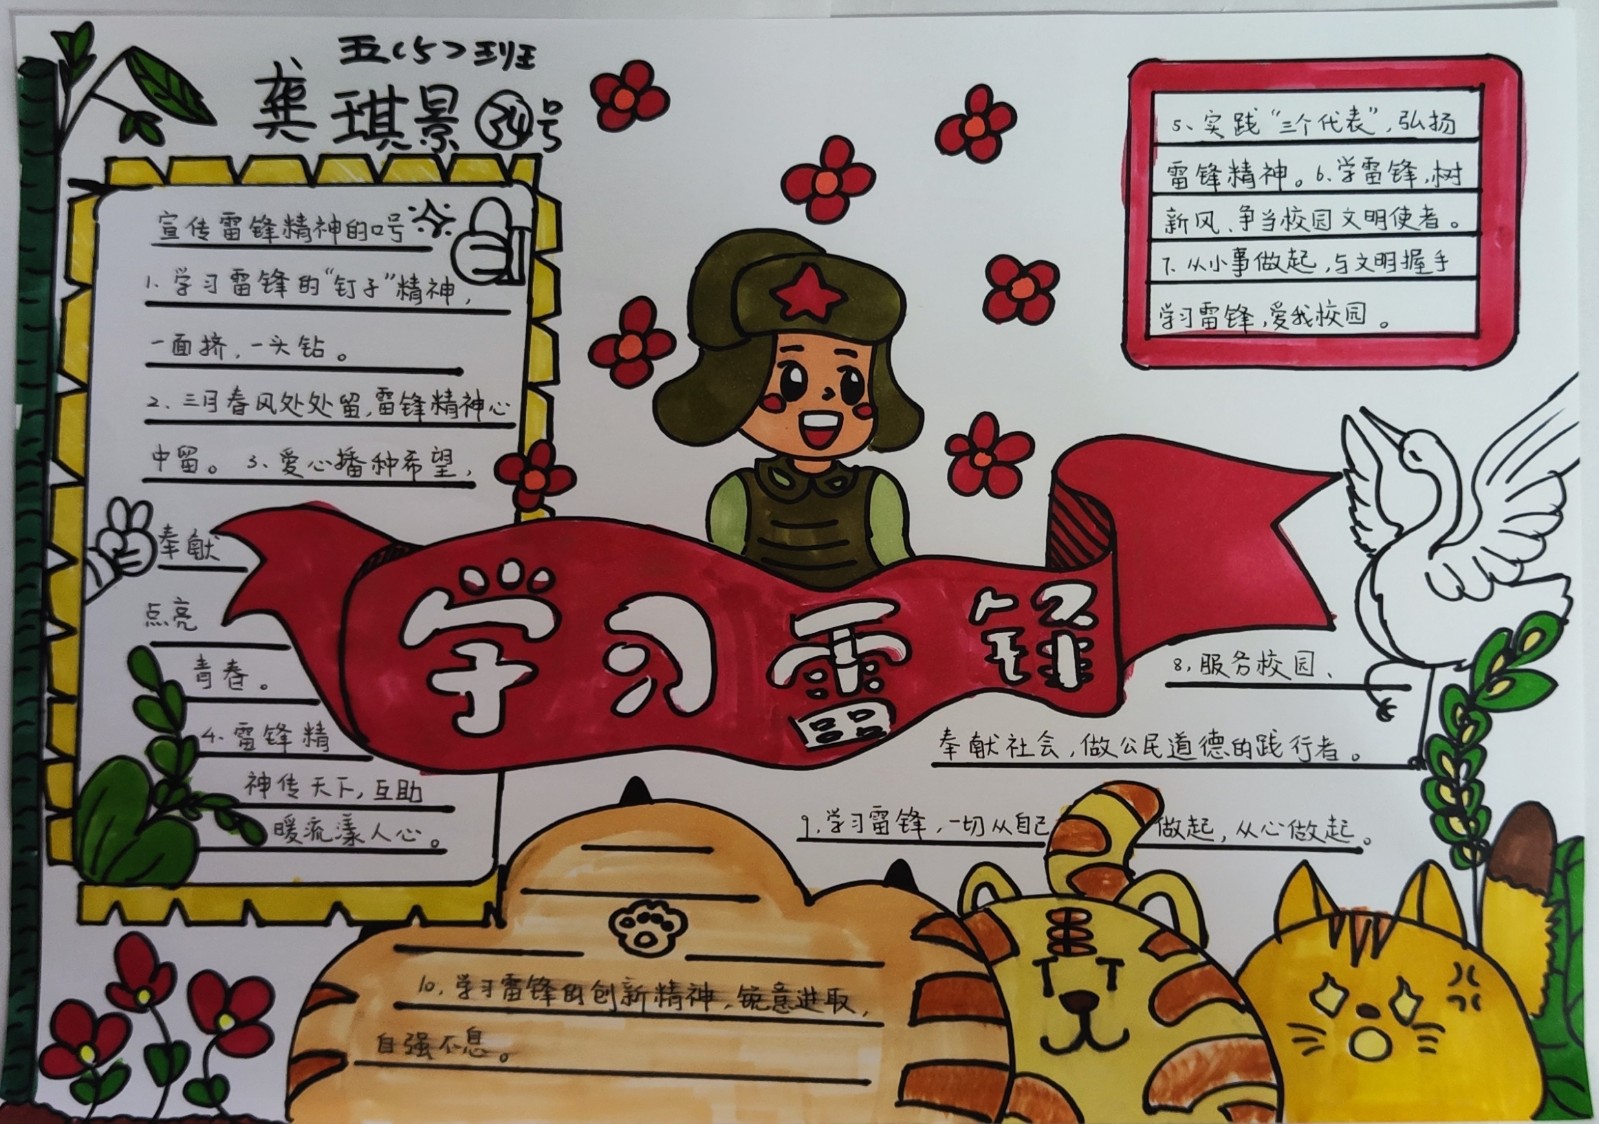 五(5)班
龚琪景 34号
宣传雷锋精神的口号
1、学习雷锋的“钉子”精神，
一面挤，一头钻。
2、三月春风处处留，雷锋精神心
中留。3、爱心播种希望，
奉献
点亮
青春。
4、雷锋精
神传天下，互助
暖流漾人心。
5、实践“三个代表”，弘扬
雷锋精神。6、学雷锋，树
新风、争当校园文明使者。
7、从小事做起，与文明握手
学习雷锋，爱我校园。
学习雷锋
8、服务校园、
奉献社会，做公民道德的践行者。
9、学习雷锋，一切从自己做起，从心做起。
10、学习雷锋的创新精神，锐意进取，
自强不息。